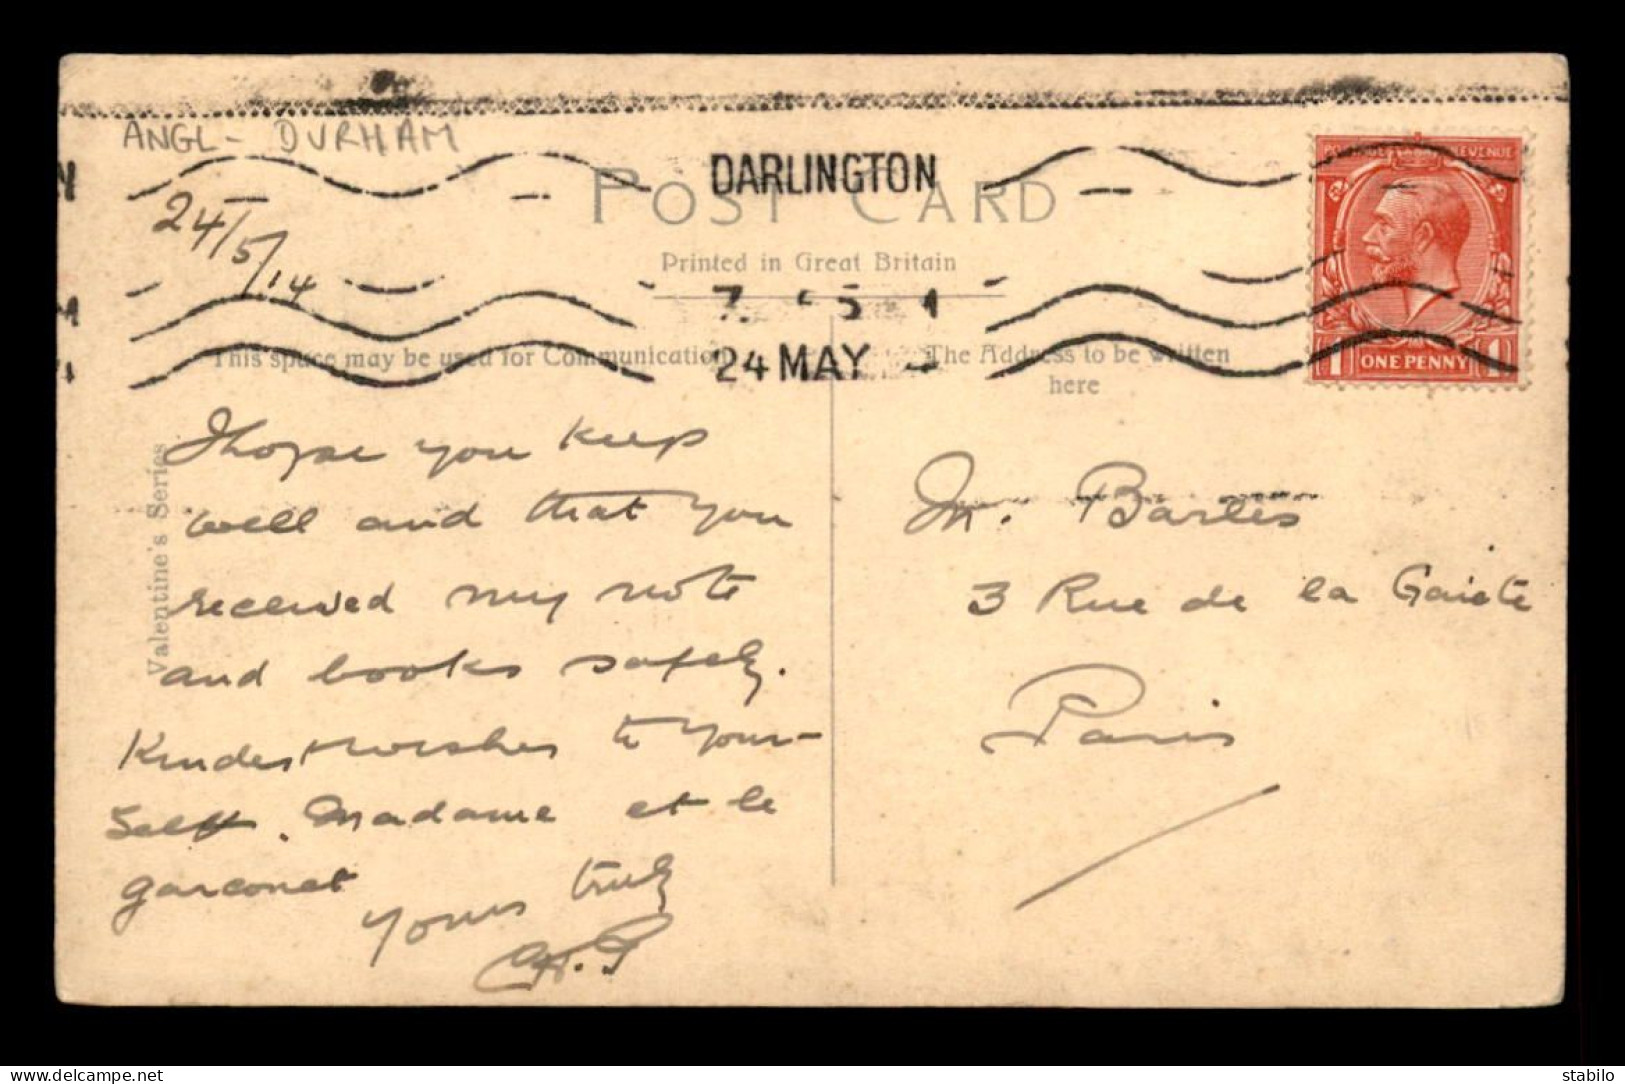 ANGL - DURHAM
DARLINGTON
POST CARD
24/5/14
Printed in Great Britain
24 MAY
This space may be used for Communication
The Address to be written
here
POSTAGE REVENUE
ONE PENNY
Valentine's Series
I hope you keep
well and that you
received my note
and books safely.
Kindest wishes to your-
self, Madame et le
garconet
Yours truly
M. Bartes
3 Rue de la Gaiete
Paris
delcampe.net
stabilo